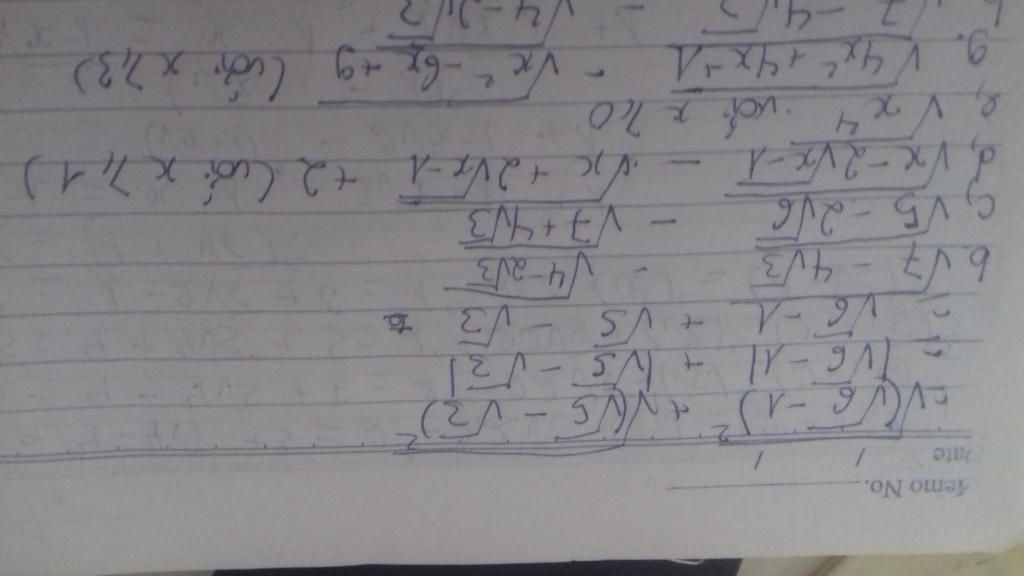 Memo No.
Date / /
= √(√6 - 1)² + √(√5 - √3)²
= |√6 - 1| + |√5 - √3|
= √6 - 1 + √5 - √3
b √(7 - 4√3) - √(4 - 2√3)
c, √(5 - 2√6) - √(7 + 4√3)
d, √(x - 2√(x-1)) - √(x + 2√(x-1)) + 2 (với x ≥ 1)
e, √(x⁴) với x ≥ 0
g. √(4x² + 4x + 1) - √(x² - 6x + 9) (với x ≥ 3)
b √(7 - 4√3) - √(4 - 2√3)